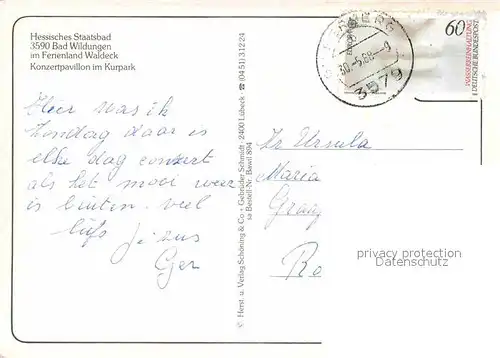 Hessisches Staatsbad
3590 Bad Wildungen
im Ferienland Waldeck
Konzertpavillon im Kurpark
Hier was ik
Zondag daar is
elke dag concert
als het mooi weer
is buiten. veel
liefs je zus
Ger
© Herst. u. Verlag Schöning & Co · Gebrüder Schmidt · 2400 Lübeck · ☎ (04 51) 3 12 24
Bestell-Nr. Basal 894
30.-5.88-9
3579
60
WASSERREINHALTUNG
DEUTSCHE BUNDESPOST
Ursula
Maria
Gra
Ro
privacy protection
Datenschutz